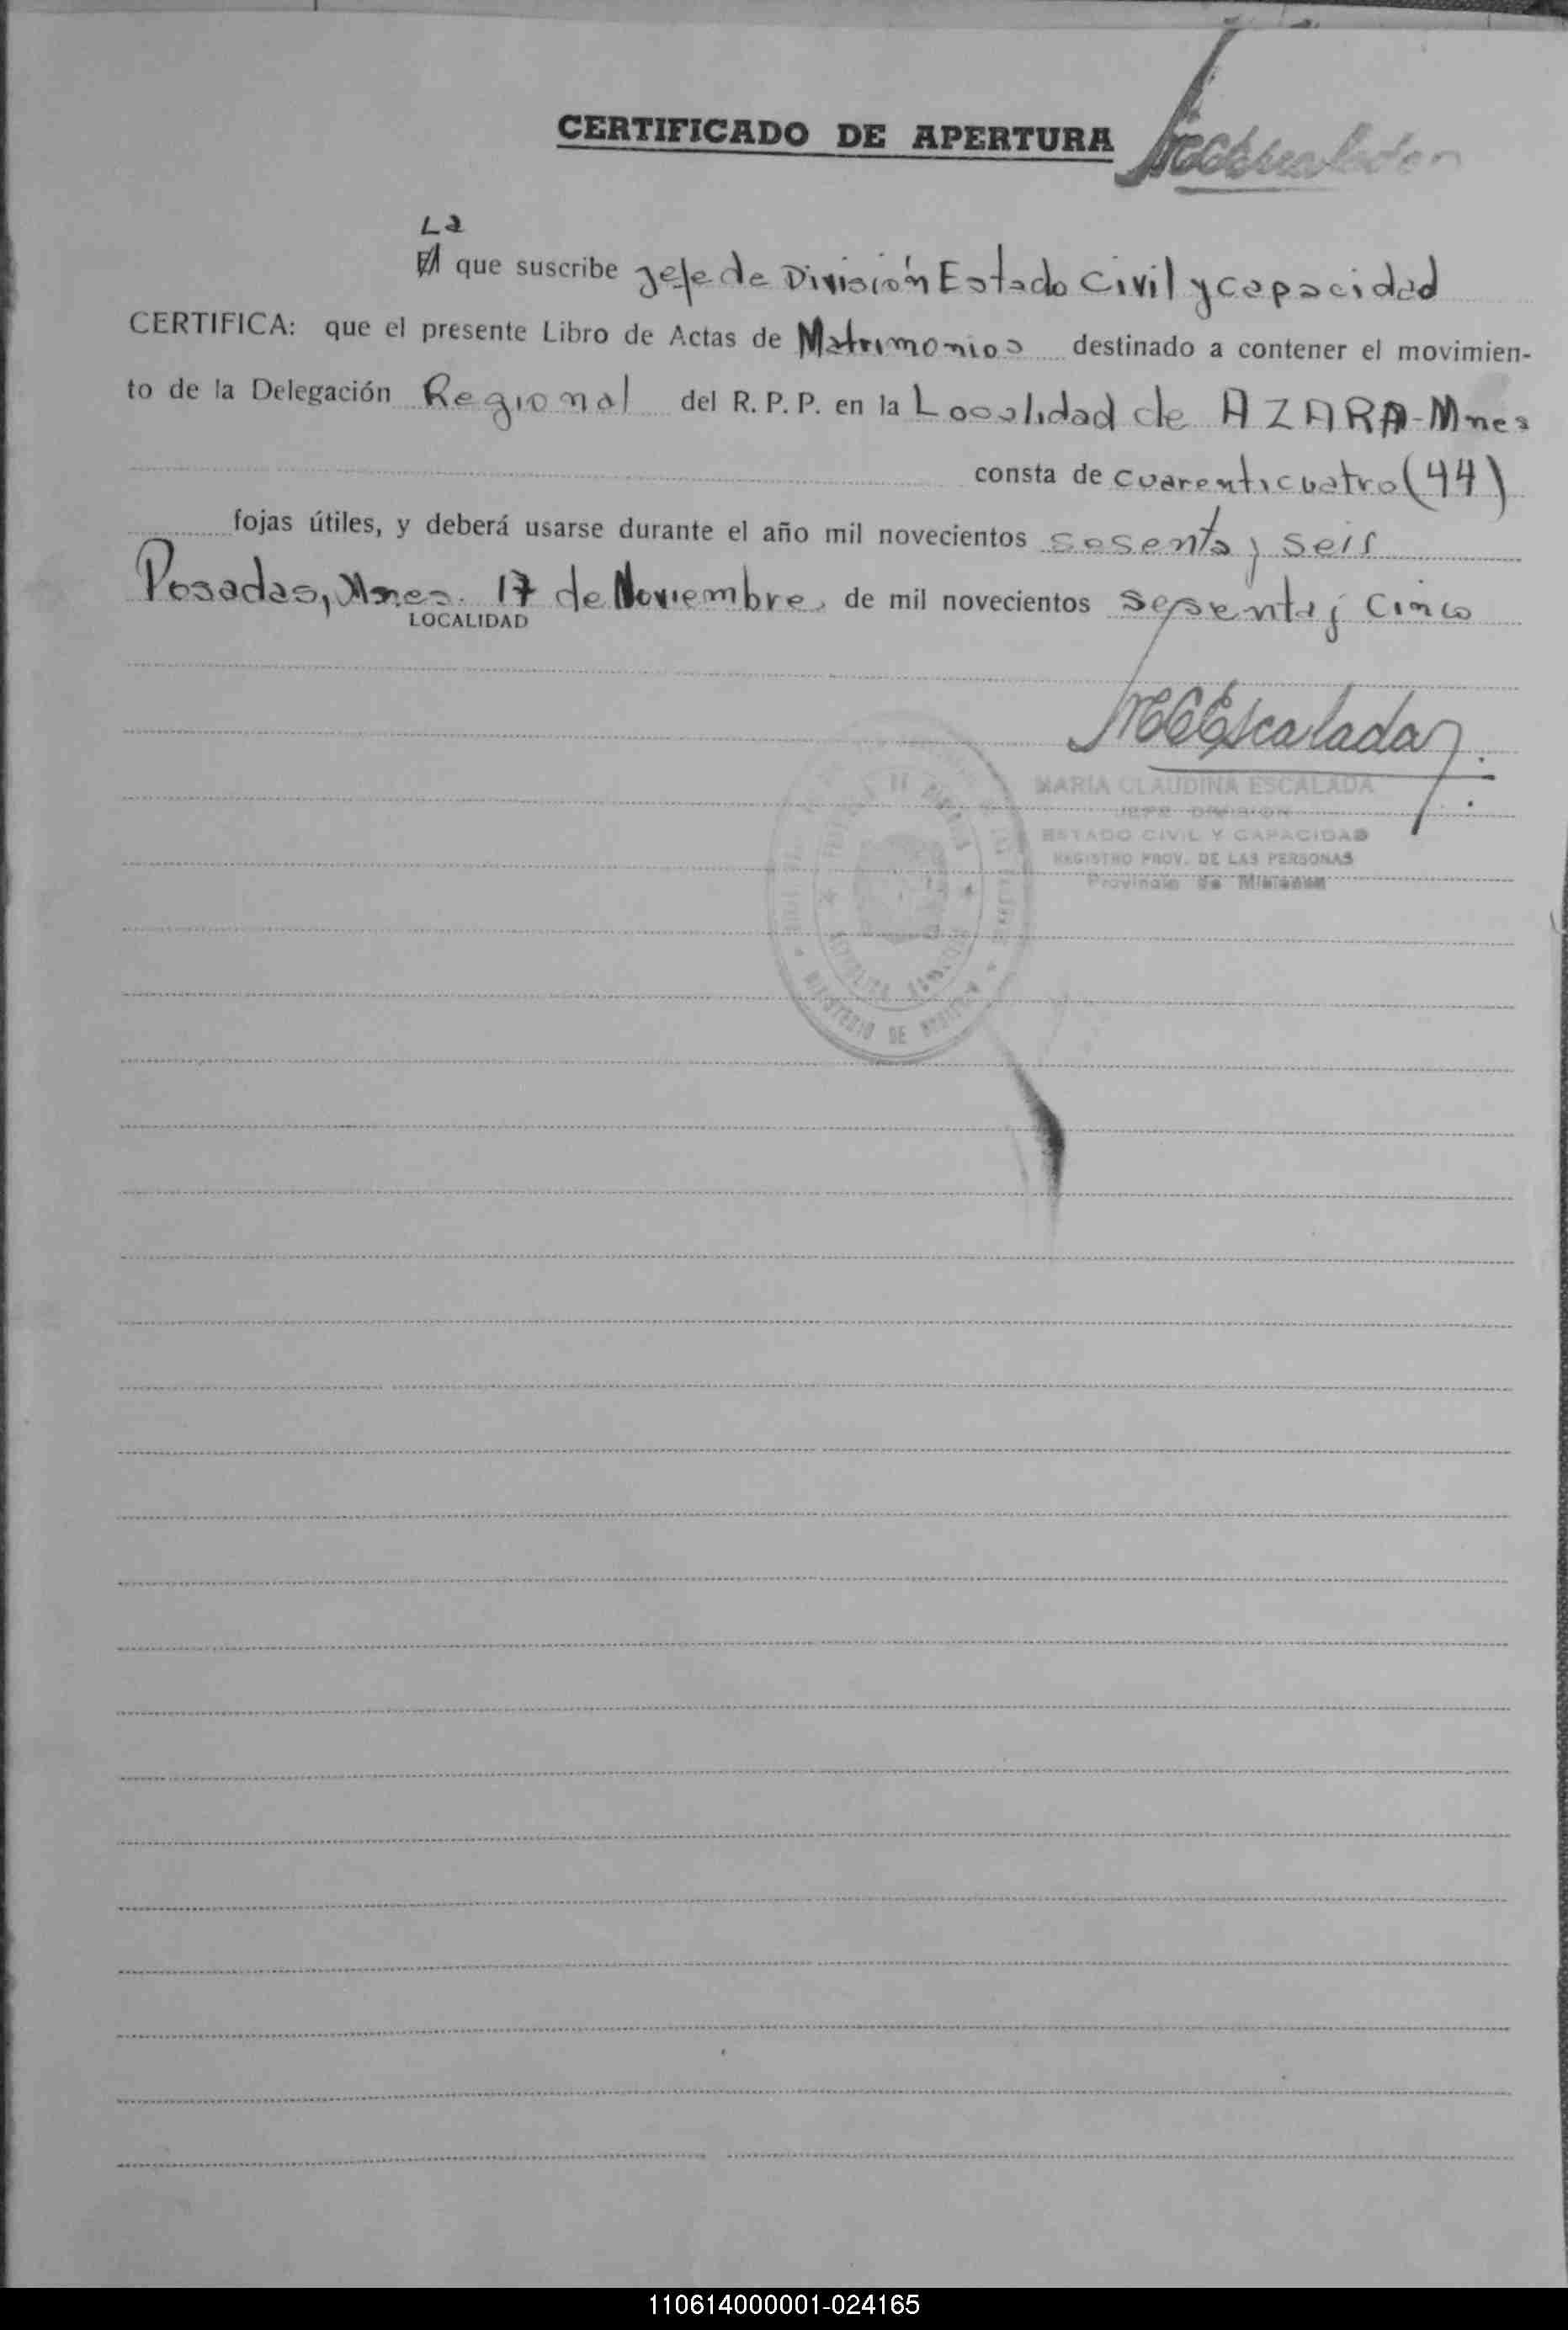 CERTIFICADO DE APERTURA
La
El que suscribe Jefe de División Estado Civil y capacidad
CERTIFICA: que el presente Libro de Actas de Matrimonios destinado a contener el movimien-
to de la Delegación Regional del R. P. P. en la Localidad de AZARA-Mnes
consta de cuarenticuatro (44)
fojas útiles, y deberá usarse durante el año mil novecientos sesenta y seis
Posadas, Mnes. 17 de Noviembre, de mil novecientos sesenta y cinco
LOCALIDAD
MCEscalada
MARIA CLAUDINA ESCALADA
JEFE DIVISION
ESTADO CIVIL Y CAPACIDAD
REGISTRO PROV. DE LAS PERSONAS
Provincia de Misiones
MINISTERIO DE
110614000001-024165